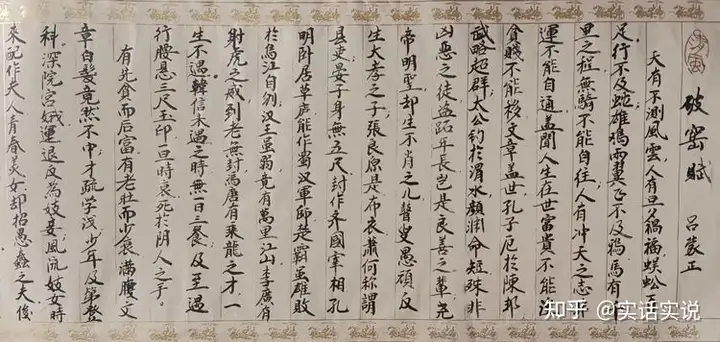 破窑賦 呂蒙正
天有不測風雲人有旦夕禍福蜈蚣百
足行不及蛇雄鷄兩翼飛不及鴉馬有千
里之程無騎不能自往人有冲天之志非
運不能自通蓋聞人生在世富貴不能淫
貧賤不能移文章蓋世孔子厄於陳邦
武略超群太公釣於渭水顔渊命短殊非
凶惡之徒盗跖年長豈是良善之輩尧
帝明聖却生不肖之儿瞽叟愚頑反
生大孝之子張良原是布衣蕭何称謂
县吏晏子身無五尺封作齐國宰相孔
明卧居草庐能作蜀汉軍師楚霸虽雄敗
於烏江自刎汉王虽弱竟有萬里江山李廣有
射虎之威到老無封馮唐有乘龍之才一
生不遇韓信未遇之時無一日三餐及至遇
行腰悬三尺玉印一旦時衰死於阴人之手。
有先貧而后富有老壯而少衰满腹文
章白髮竟然不中才疏学浅少年及第登
科深院宫娥運退反為妓妾風流妓女時
來配作夫人青春美女却招愚蠢之夫俊
知乎 @实话实说